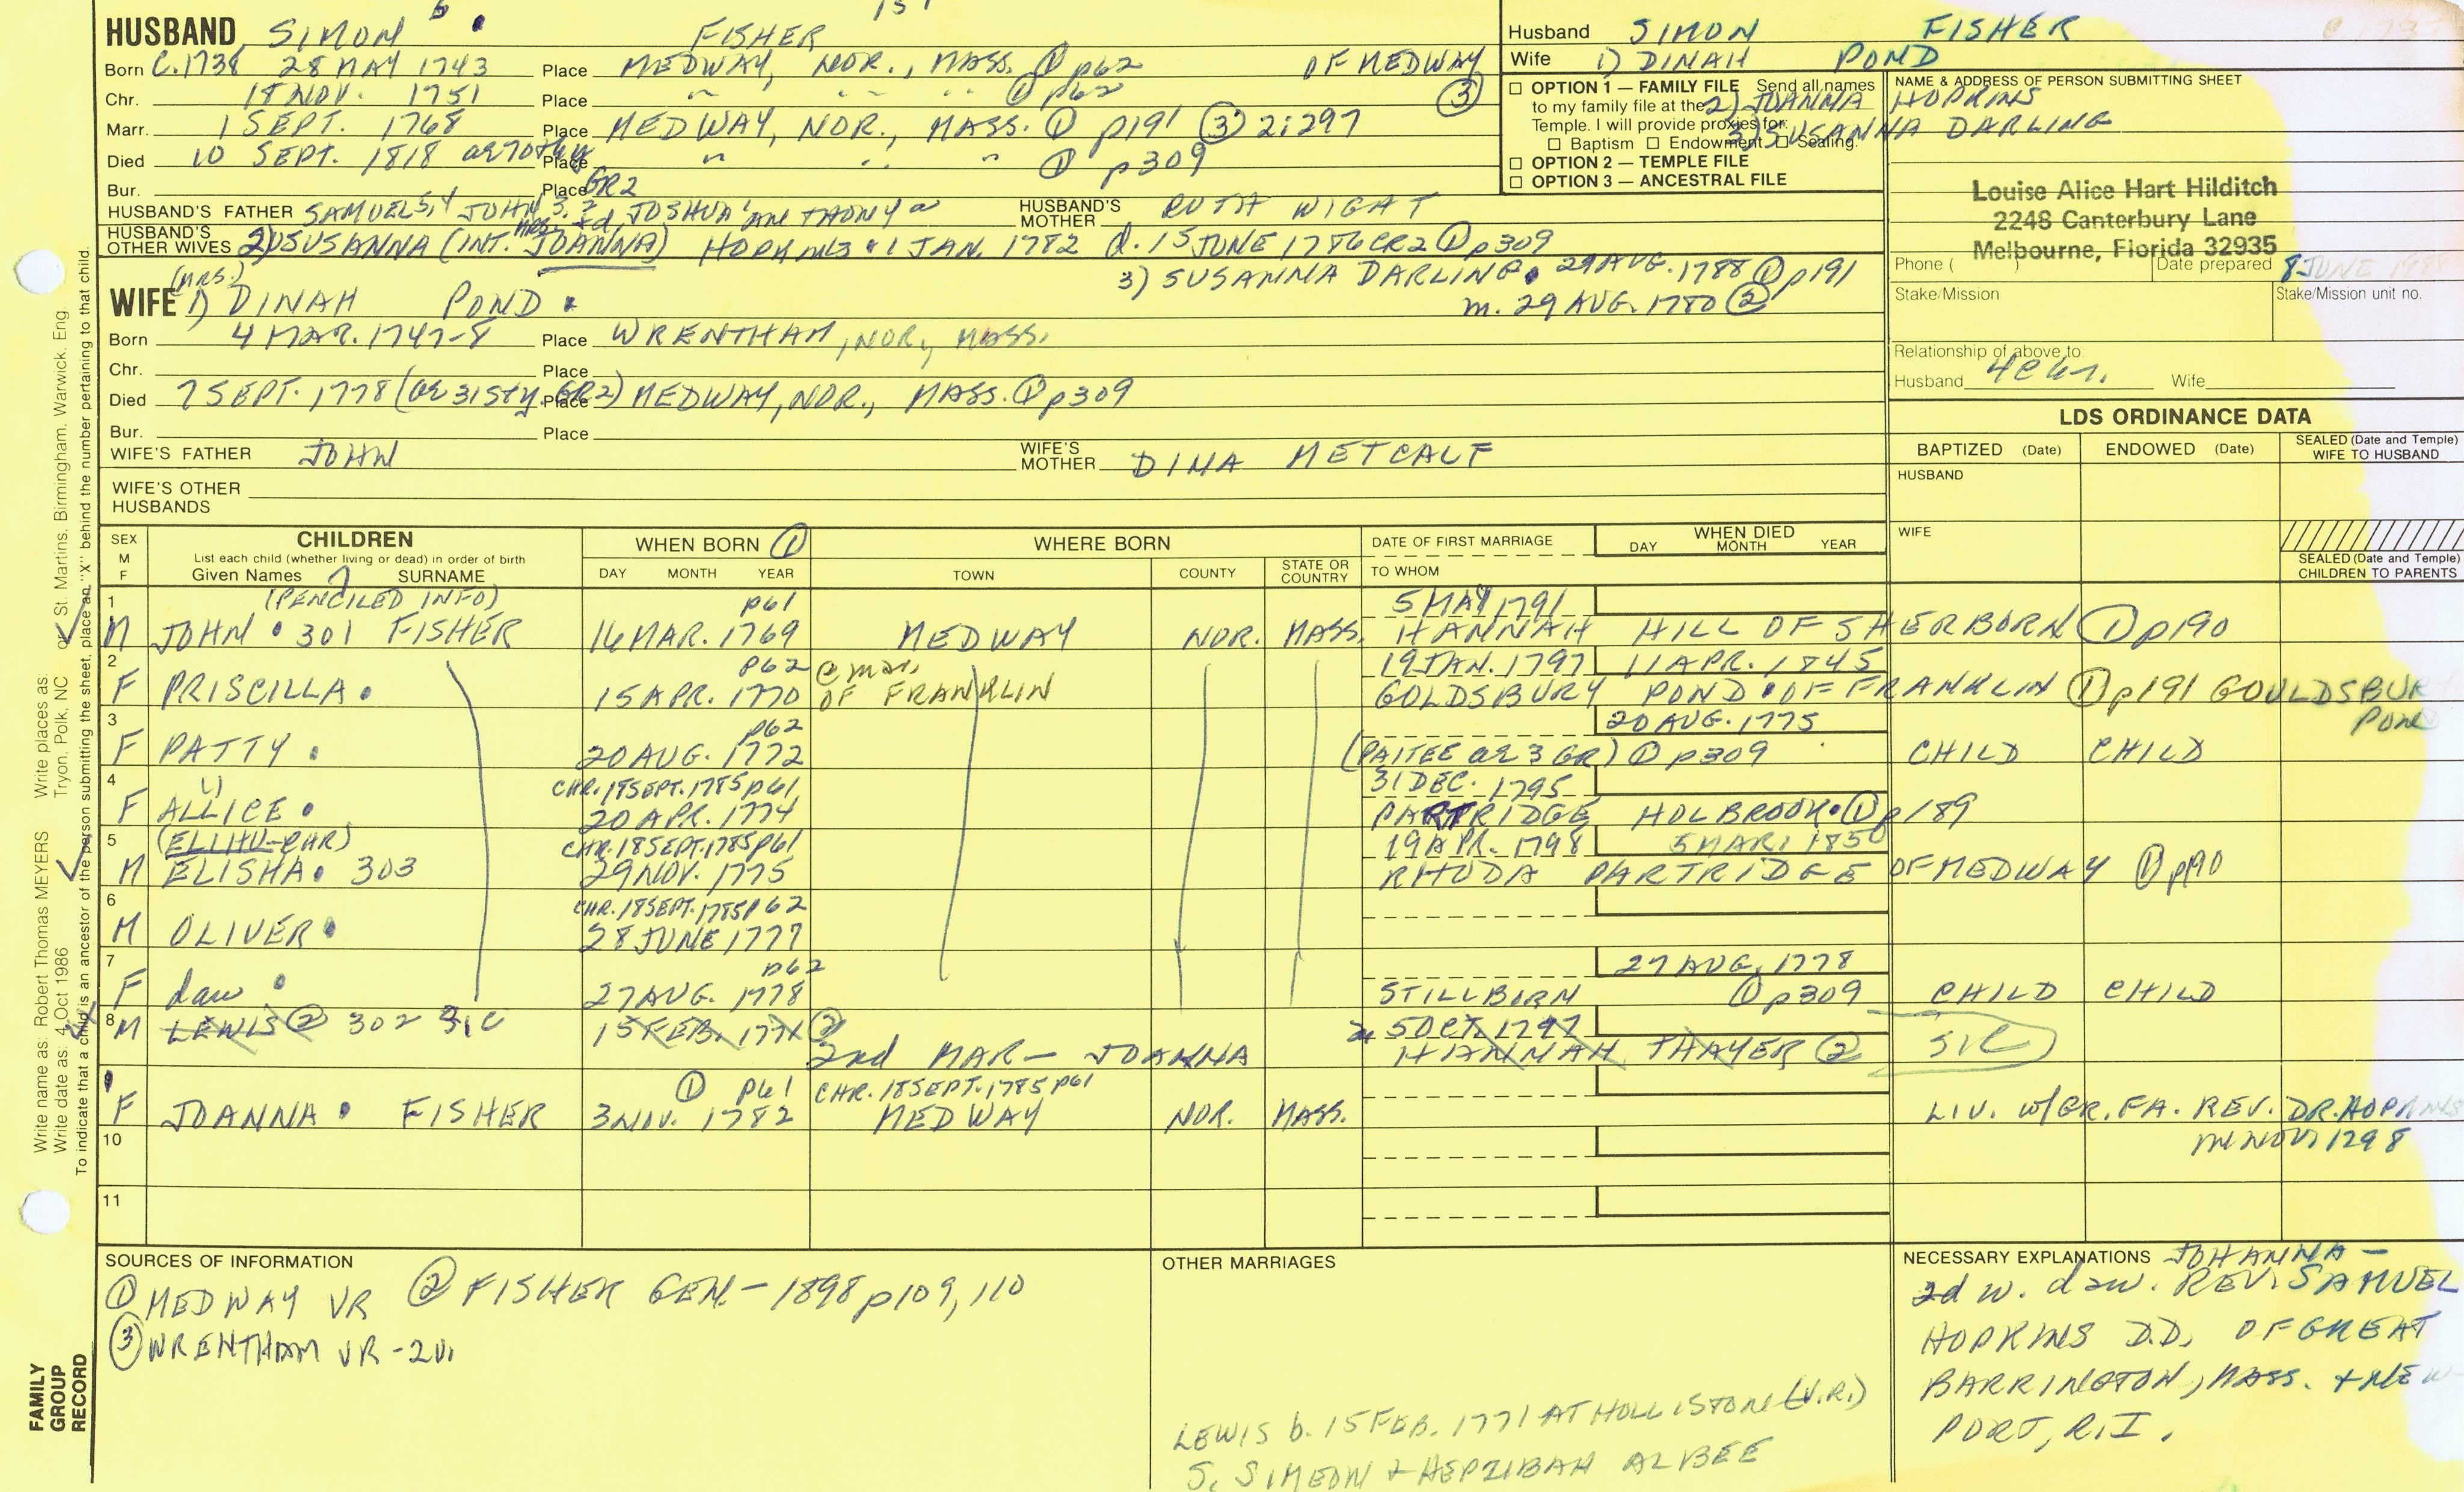 HUSBAND SIMON 6 FISHER
Born C.1738 28 MAY 1743 Place MEDWAY, NOR., MASS. ① p62 OF MEDWAY
Chr. 18 NOV. 1751 Place " " " ① p62 ③
Marr. 1 SEPT. 1768 Place MEDWAY, NOR., MASS. ① p191 ③ 2:297
Died 10 SEPT. 1818 ae 70thy Place " " " ① p309
Bur. Place GR2
HUSBAND'S FATHER SAMUEL 5,4 JOHN 3,2 JOSHUA 1 ANTHONY a HUSBAND'S MOTHER RUTH WIGHT
HUSBAND'S OTHER WIVES 2) SUSANNA (INT. MRS. JOANNA) HOPKINS 1 JAN. 1782 d. 15 JUNE 1786 CR2 ① p309
3) SUSANNA DARLING 29 AUG. 1788 ① p191
m. 29 AUG. 1780 ②
WIFE (MRS.) 1) DINAH POND
Born 4 MAR. 1747-8 Place WRENTHAM, NOR., MASS.
Chr. Place
Died 7 SEPT. 1778 (ae 31sty. GR2) Place MEDWAY, NOR., MASS. ① p309
Bur. Place
WIFE'S FATHER JOHN WIFE'S MOTHER DINA METCALF
WIFE'S OTHER HUSBANDS
Husband SIMON FISHER
Wife 1) DINAH POND
2) JOANNA HOPKINS
3) SUSANNA DARLING
☐ OPTION 1 — FAMILY FILE Send all names
to my family file at the
Temple. I will provide proxies for:
☐ Baptism ☐ Endowment ☐ Sealing.
☐ OPTION 2 — TEMPLE FILE
☐ OPTION 3 — ANCESTRAL FILE
NAME & ADDRESS OF PERSON SUBMITTING SHEET
Louise Alice Hart Hilditch
2248 Canterbury Lane
Melbourne, Florida 32935
Phone ( ) Date prepared 8 JUNE
Stake/Mission Stake/Mission unit no.
Relationship of above to
Husband Wife
LDS ORDINANCE DATA
BAPTIZED (Date) ENDOWED (Date) SEALED (Date and Temple) WIFE TO HUSBAND
HUSBAND
WIFE
SEALED (Date and Temple) CHILDREN TO PARENTS
SEX M F
CHILDREN
List each child (whether living or dead) in order of birth
Given Names SURNAME
WHEN BORN ①
DAY MONTH YEAR
WHERE BORN
TOWN COUNTY STATE OR COUNTRY
DATE OF FIRST MARRIAGE
TO WHOM
WHEN DIED
DAY MONTH YEAR
1 (PENCILED INFO) p61 5 MAY 1791
M JOHN 301 FISHER 16 MAR. 1769 MEDWAY NOR. MASS. HANNAH HILL OF SHERBORN ① p190
2 p62 @ mar. 19 JAN. 1797 11 APR. 1845
F PRISCILLA 15 APR. 1770 OF FRANKLIN GOLDSBURY POND OF FRANKLIN ① p191 GOULDSBUR
POND
3 p62 20 AUG. 1775
F PATTY 20 AUG. 1772 (PAITEE ae 3 GR) ① p309 CHILD CHILD
4 CHR. 18 SEPT. 1785 p61 31 DEC. 1795
F ALLICE 20 APR. 1774 PARTRIDGE HOLBROOK ① p189
5 (ELLIHU-CHR) CHR. 18 SEPT. 1785 p61 19 APR. 1798 5 MAR. 1850
M ELISHA 303 29 NOV. 1775 RHODA PARTRIDGE OF MEDWAY ① p190
6 CHR. 18 SEPT. 1785 p62
M OLIVER 28 JUNE 1777
7 p62 27 AUG. 1778
F daw 27 AUG. 1778 STILLBORN ① p309 CHILD CHILD
8 M LEWIS ② 302 SIC 15 FEB. 1771 ② 5 OCT. 1797
2nd MAR — JOANNA HANNAH THAYER ② SIC
9 ① p61 CHR. 18 SEPT. 1785 p61
F JOANNA FISHER 3 NOV. 1782 MEDWAY NOR. MASS. LIV. W/GR. FA. REV. DR. HOPKINS
IN NOV. 1798
10
11
SOURCES OF INFORMATION
① MEDWAY VR ② FISHER GEN. — 1898 p109, 110
③ WRENTHAM VR - 2V.
OTHER MARRIAGES
LEWIS b. 15 FEB. 1771 AT HOLLISTON (V.R.)
S. SIMEON & HEPZIBAH ALBEE
NECESSARY EXPLANATIONS JOHANNA —
2d w. daw. REV. SAMUEL
HOPKINS D.D. OF GREAT
BARRINGTON, MASS. + NEW
PORT, R.I.
Write name as: Robert Thomas MEYERS Write places as: Tryon, Polk, NC or St. Martins, Birmingham, Warwick, Eng.
Write date as: 4 Oct 1986
To indicate that a child is an ancestor of the person submitting the sheet, place an "X" behind the number pertaining to that child.
FAMILY GROUP RECORD